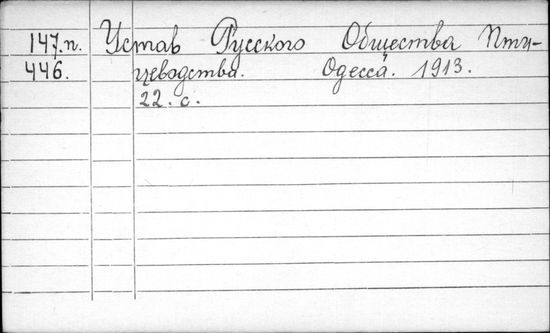 147.п. Устав Русского Общества Пти-
446. цеводства. Одесса. 1913.
22. с.